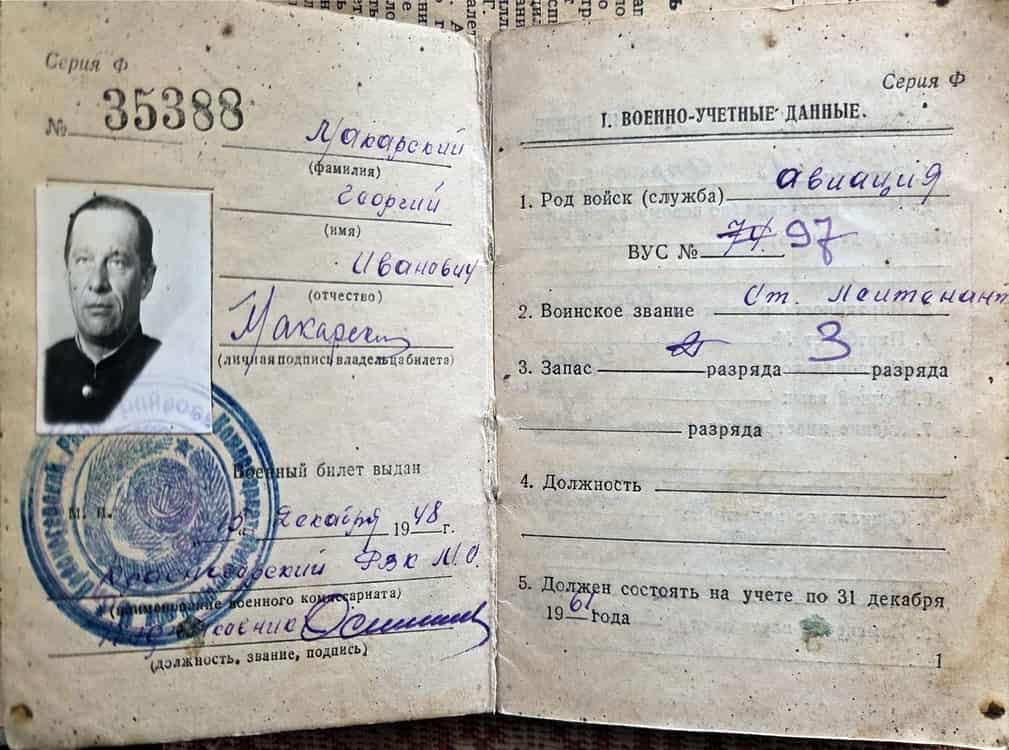 Серия Ф
№ 35388
Макарский
(фамилия)
Георгий
(имя)
Иванович
(отчество)
Макарский
(личная подпись владельца билета)
Военный билет выдан
М. П.
"15" декабря 1948 г.
Красногорский РВК М.О.
(наименование военного комиссариата)
(должность, звание, подпись)
Серия Ф
I. ВОЕННО-УЧЕТНЫЕ ДАННЫЕ.
1. Род войск (служба) авиация
ВУС № 97
2. Воинское звание Ст. Лейтенант
3. Запас разряда 3 разряда
разряда
4. Должность
5. Должен состоять на учете по 31 декабря
1961 года
1